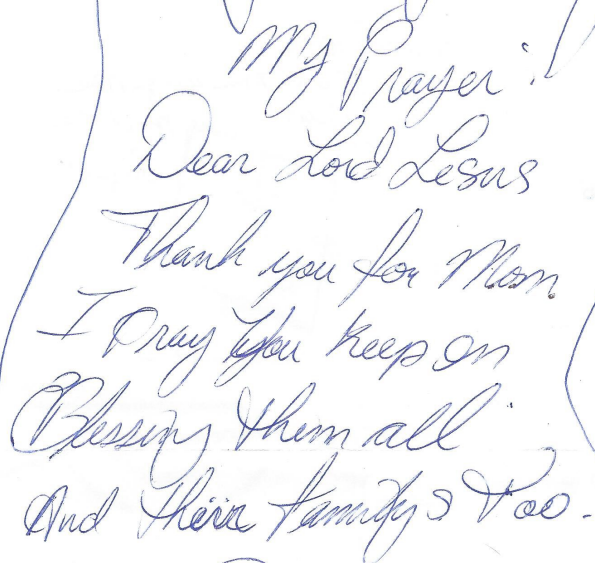 My Prayer!
Dear Lord Lesus
Thank you for Mom
I Pray You keep on
Blessing them all
And Their familys Too.